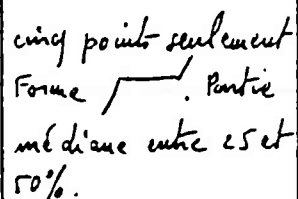 cinq points seulement
Forme . Partie
médiane entre 25 et
50%.